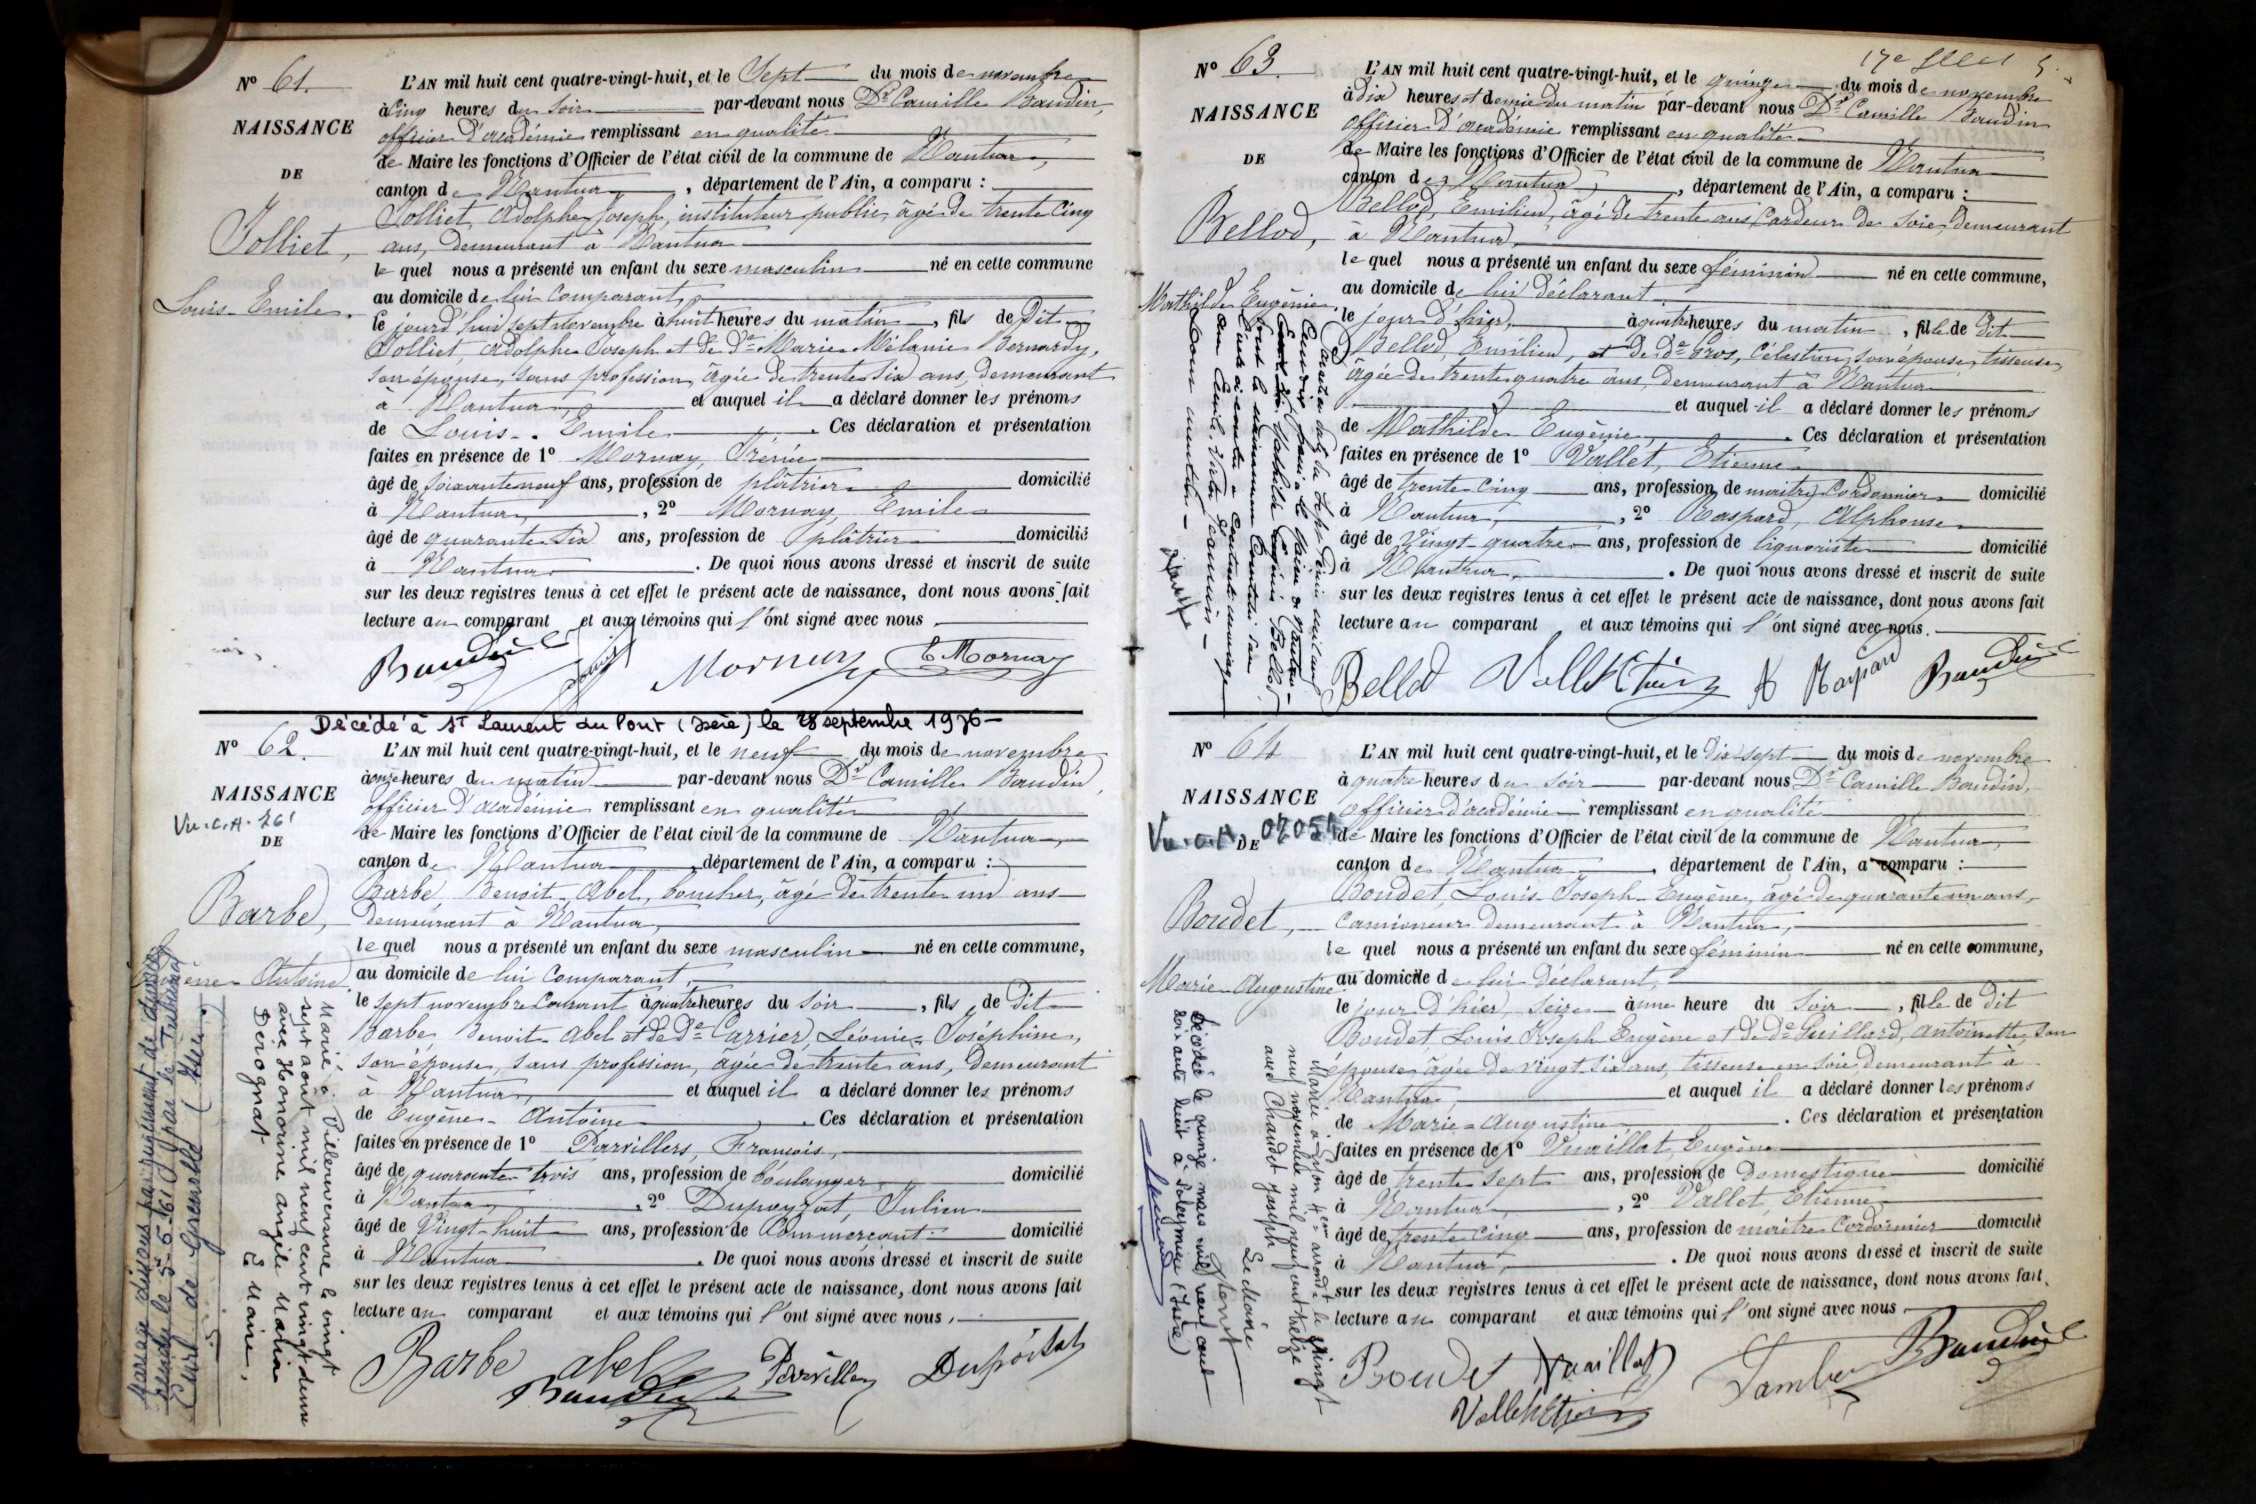 Nº 61.
NAISSANCE
DE
Jolliet,
Louis-Emile.
L'AN mil huit cent quatre-vingt-huit, et le Sept du mois de novembre
à Cinq heures du Soir par-devant nous Dr Camille Baudin,
officier d'académie remplissant en qualité
de Maire les fonctions d'Officier de l'état civil de la commune de Nantua,
canton de Nantua, département de l'Ain, a comparu :
Jolliet, Adolphe Joseph, instituteur public, âgé de trente cinq
ans, demeurant à Nantua
lequel nous a présenté un enfant du sexe masculin né en cette commune
au domicile de lui comparant,
le jourd'hui sept novembre à huit heures du matin, fils de dit
Jolliet, Adolphe Joseph et de De Marie Mélanie Bernardy,
son épouse, sans profession, âgée de trente six ans, demeurant
à Nantua, et auquel il a déclaré donner les prénoms
de Louis-Emile. Ces déclaration et présentation
faites en présence de 1º Mornay, Irénée
âgé de soixante neuf ans, profession de plâtrier domicilié
à Nantua, 2º Mornay, Emile
âgé de quarante six ans, profession de plâtrier domicilié
à Nantua. De quoi nous avons dressé et inscrit de suite
sur les deux registres tenus à cet effet le présent acte de naissance, dont nous avons fait
lecture au comparant et aux témoins qui l'ont signé avec nous
Baudin Jolliet Mornay E Mornay
Décédé à St Laurent du Pont (Isère) le 28 septembre 1976
Nº 62.
NAISSANCE
DE
Barbe,
Eugène-Antoine
L'AN mil huit cent quatre-vingt-huit, et le neuf du mois de novembre
à onze heures du matin par-devant nous Dr Camille Baudin,
officier d'académie remplissant en qualité
de Maire les fonctions d'Officier de l'état civil de la commune de Nantua,
canton de Nantua, département de l'Ain, a comparu :
Barbe, Benoit-Abel, boucher, âgé de trente un ans
demeurant à Nantua,
lequel nous a présenté un enfant du sexe masculin né en cette commune,
au domicile de lui comparant,
le sept novembre courant à quatre heures du soir, fils de dit
Barbe, Benoit-Abel et de De Carrier, Léonie-Joséphine,
son épouse, sans profession, âgée de trente ans, demeurant
à Nantua, et auquel il a déclaré donner les prénoms
de Eugène-Antoine. Ces déclaration et présentation
faites en présence de 1º Parvillers, François,
âgé de quarante trois ans, profession de boulanger domicilié
à Nantua, 2º Dupoizat, Julien
âgé de Vingt-huit ans, profession de Commerçant domicilié
à Nantua. De quoi nous avons dressé et inscrit de suite
sur les deux registres tenus à cet effet le présent acte de naissance, dont nous avons fait
lecture au comparant et aux témoins qui l'ont signé avec nous,
Barbe abel Parvillers Dupoizat
Baudin
Marié à Villereversure le vingt
sept août mil neuf cent vingt-deux
avec Honorine Angèle Maria
Derognat
Le Maire,
Mariage dissous par jugement de divorce
rendu le 5-6-161 par le Tribunal
Civil de Grenoble (Isère)
Nº 63.
NAISSANCE
DE
Bellod,
Mathilde Eugénie
L'AN mil huit cent quatre-vingt-huit, et le quinze du mois de novembre
à dix heures et demie du matin par-devant nous Dr Camille Baudin
officier d'académie remplissant en qualité
de Maire les fonctions d'Officier de l'état civil de la commune de Nantua
canton de Nantua, département de l'Ain, a comparu :
Bellod, Emilien, âgé de trente ans, Cardeur de Soie, demeurant
à Nantua,
lequel nous a présenté un enfant du sexe féminin né en cette commune,
au domicile de lui déclarant.
le jour d'hier, à quatre heures du matin, fille de dit
Bellod, Emilien, et de De Gros, Célestine, son épouse, tisseuse
âgée de trente quatre ans, demeurant à Nantua
et auquel il a déclaré donner les prénoms
de Mathilde Eugénie. Ces déclaration et présentation
faites en présence de 1º Vallet, Etienne
âgé de trente-cinq ans, profession de maître Cordonnier domicilié
à Nantua, 2º Raspard, Alphonse
âgé de Vingt-quatre ans, profession de liquoriste domicilié
à Nantua. De quoi nous avons dressé et inscrit de suite
sur les deux registres tenus à cet effet le présent acte de naissance, dont nous avons fait
lecture au comparant et aux témoins qui l'ont signé avec nous.
Bellod Vallet Etienne A Raspard Baudin
Nº 64
NAISSANCE
DE
Boudet,
Marie-Augustine
L'AN mil huit cent quatre-vingt-huit, et le dix sept du mois de novembre
à quatre heures du soir par-devant nous Dr Camille Baudin,
officier d'académie remplissant en qualité
de Maire les fonctions d'Officier de l'état civil de la commune de Nantua,
canton de Nantua, département de l'Ain, a comparu :
Boudet, Louis-Joseph-Eugène, âgé de quarante un ans,
camionneur demeurant à Nantua,
lequel nous a présenté un enfant du sexe féminin né en cette commune,
au domicile de lui déclarant,
le jour d'hier, seize à une heure du soir, fille de dit
Boudet, Louis Joseph Eugène et de De Guillard, Antoinette, son
épouse âgée de vingt six ans, tisseuse en soie, demeurant à
Nantua, et auquel il a déclaré donner les prénoms
de Marie-Augustine. Ces déclaration et présentation
faites en présence de 1º Vuaillat, Eugène
âgé de trente sept ans, profession de Domestique domicilié
à Nantua, 2º Vallet, Etienne
âgé de trente cinq ans, profession de maître Cordonnier domicilié
à Nantua, De quoi nous avons dressé et inscrit de suite
sur les deux registres tenus à cet effet le présent acte de naissance, dont nous avons fait
lecture au comparant et aux témoins qui l'ont signé avec nous
Boudet Vuaillat Baudin
Vallet Etienne
Mariée à Lyon 4em arrondt le vingt
neuf novembre mil neuf cent treize
avec Chaudet Joseph
Le Maire
Décédée le quinze mars mil neuf cent
soixante huit à Poleymieu (Isère)